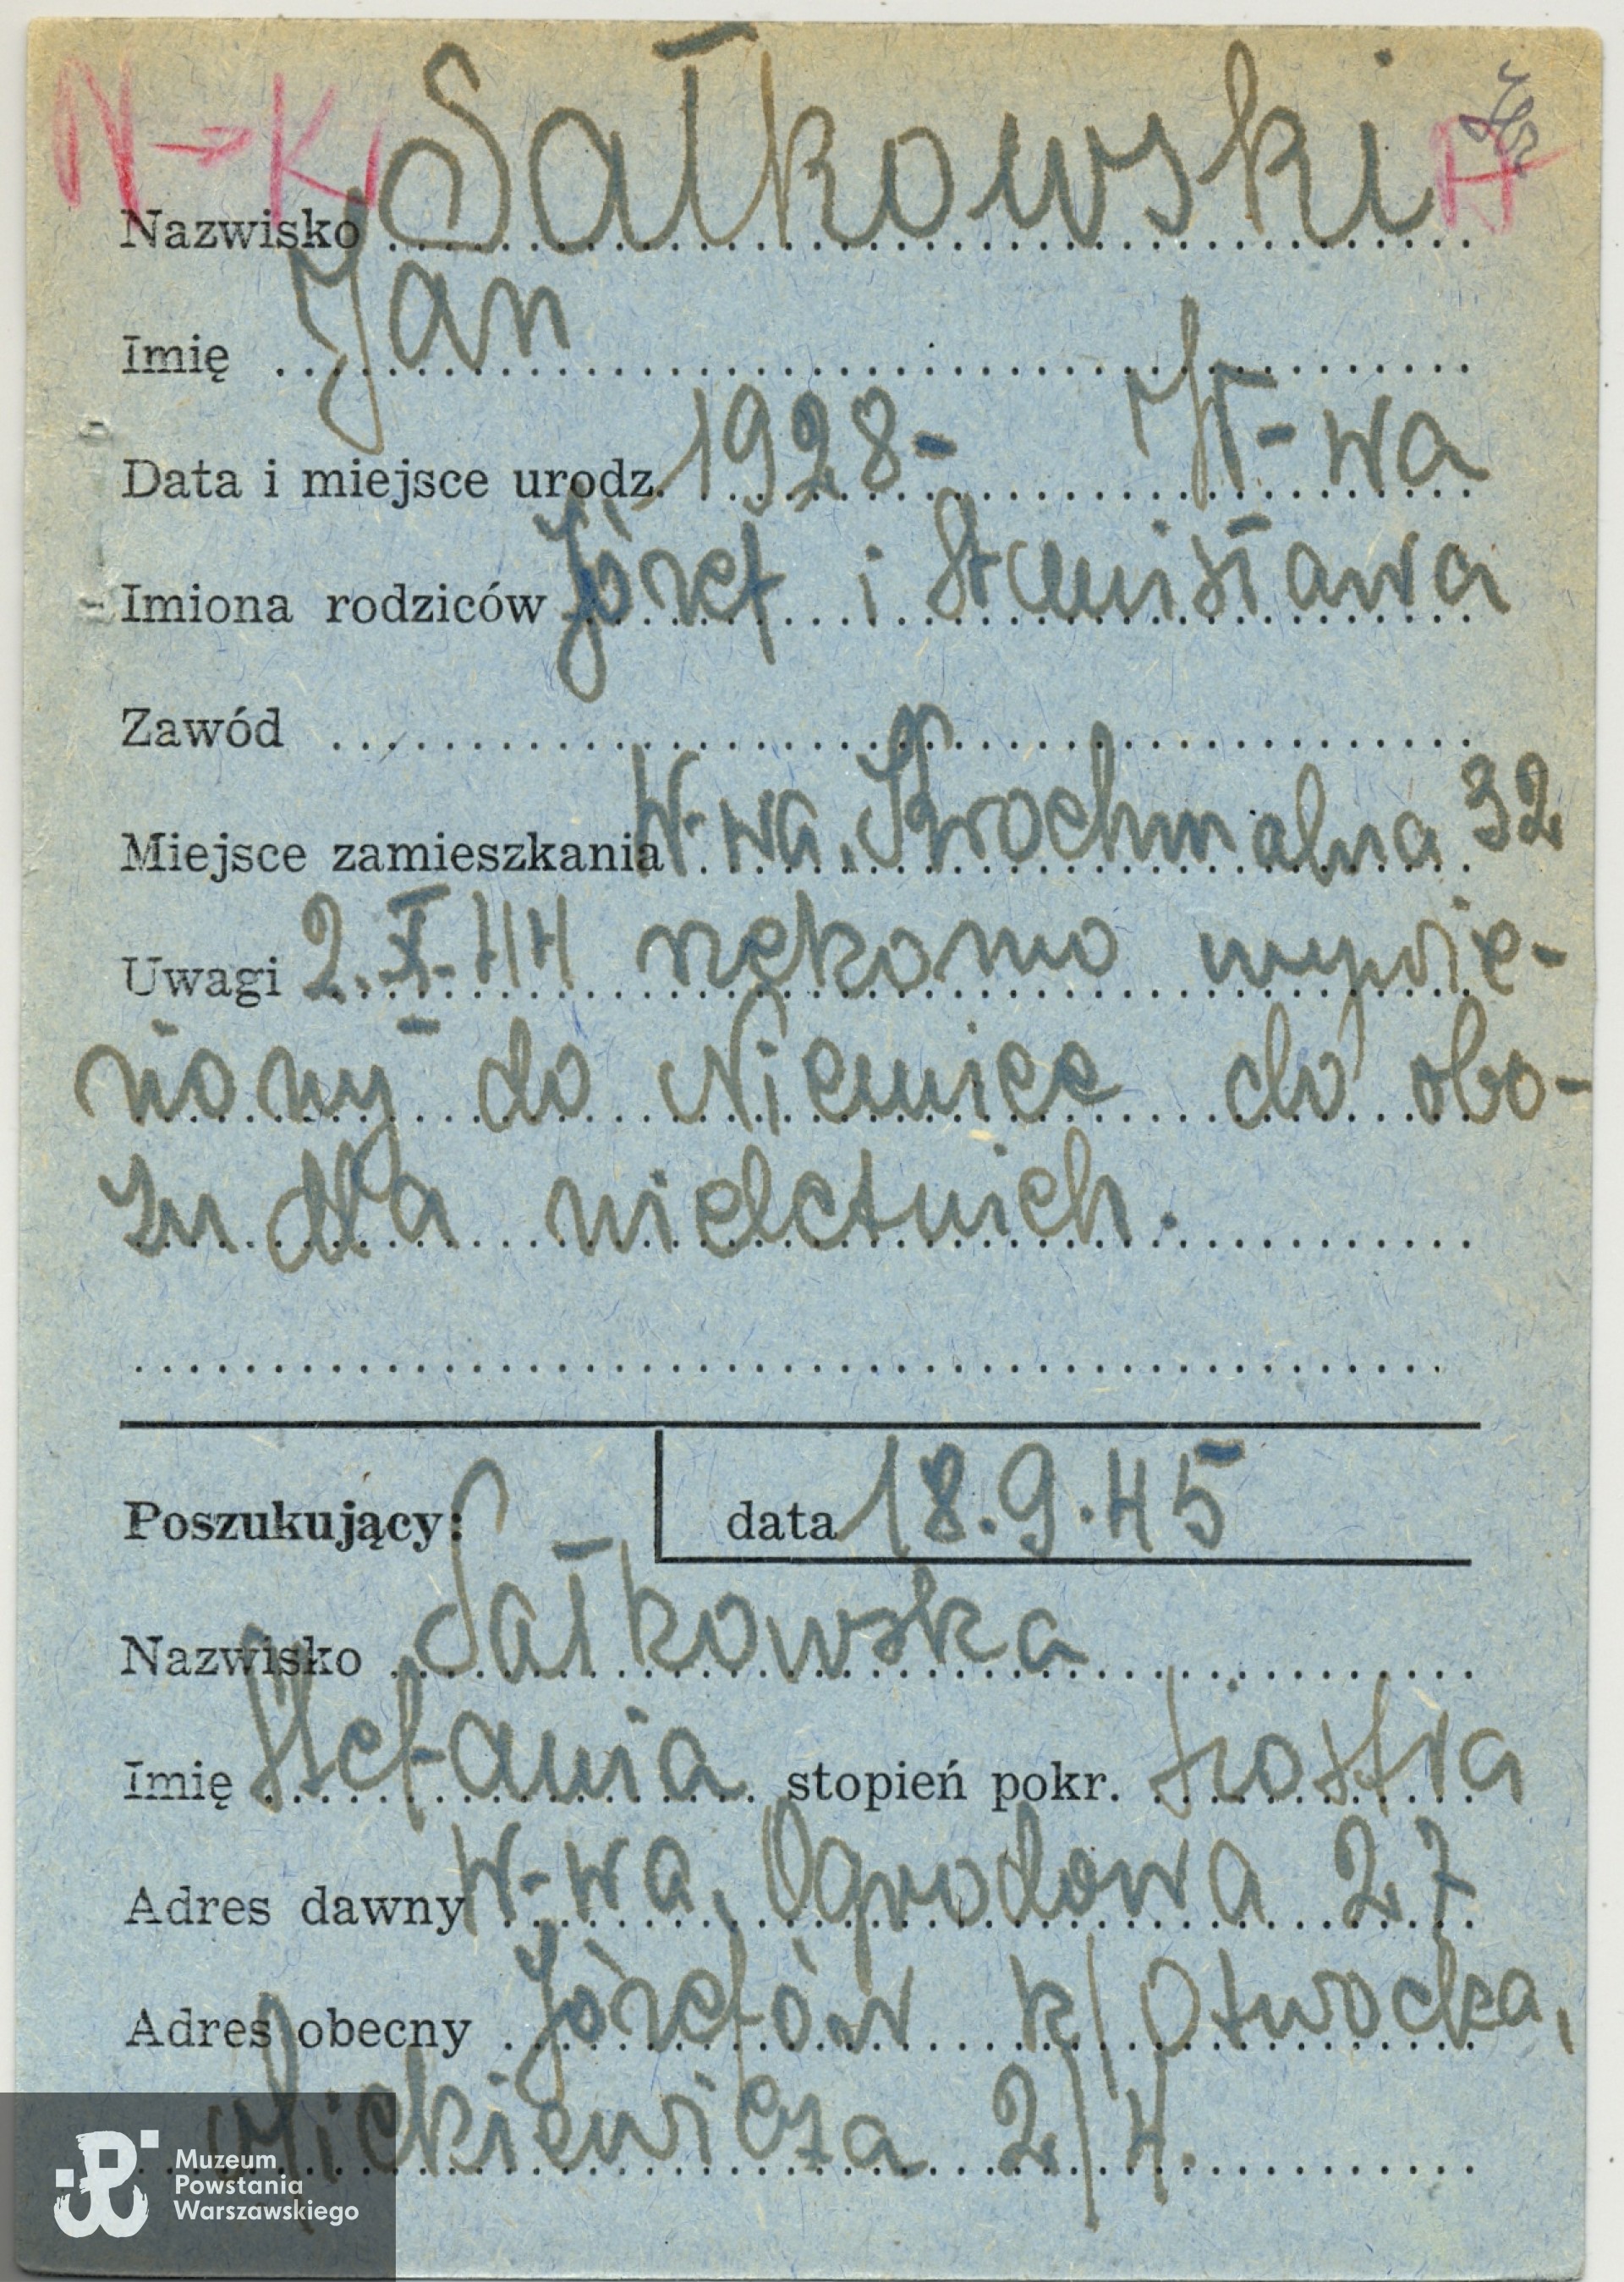 N→K
Nazwisko Sałkowski
Imię Jan
Data i miejsce urodz. 1928- W-wa
Imiona rodziców Józef i Stanisława
Zawód
Miejsce zamieszkania W-wa, Krochmalna 32
Uwagi 2.X.44 rzekomo wywie-
ziony do Niemiec do obo-
zu dla nieletnich.
Poszukujący: data 18.9.45
Nazwisko Sałkowska
Imię Stefania stopień pokr. siostra
Adres dawny W-wa, Ogrodowa 27
Adres obecny Józefów k/Otwocka,
Mickiewicza 2/4.
Muzeum
Powstania
Warszawskiego